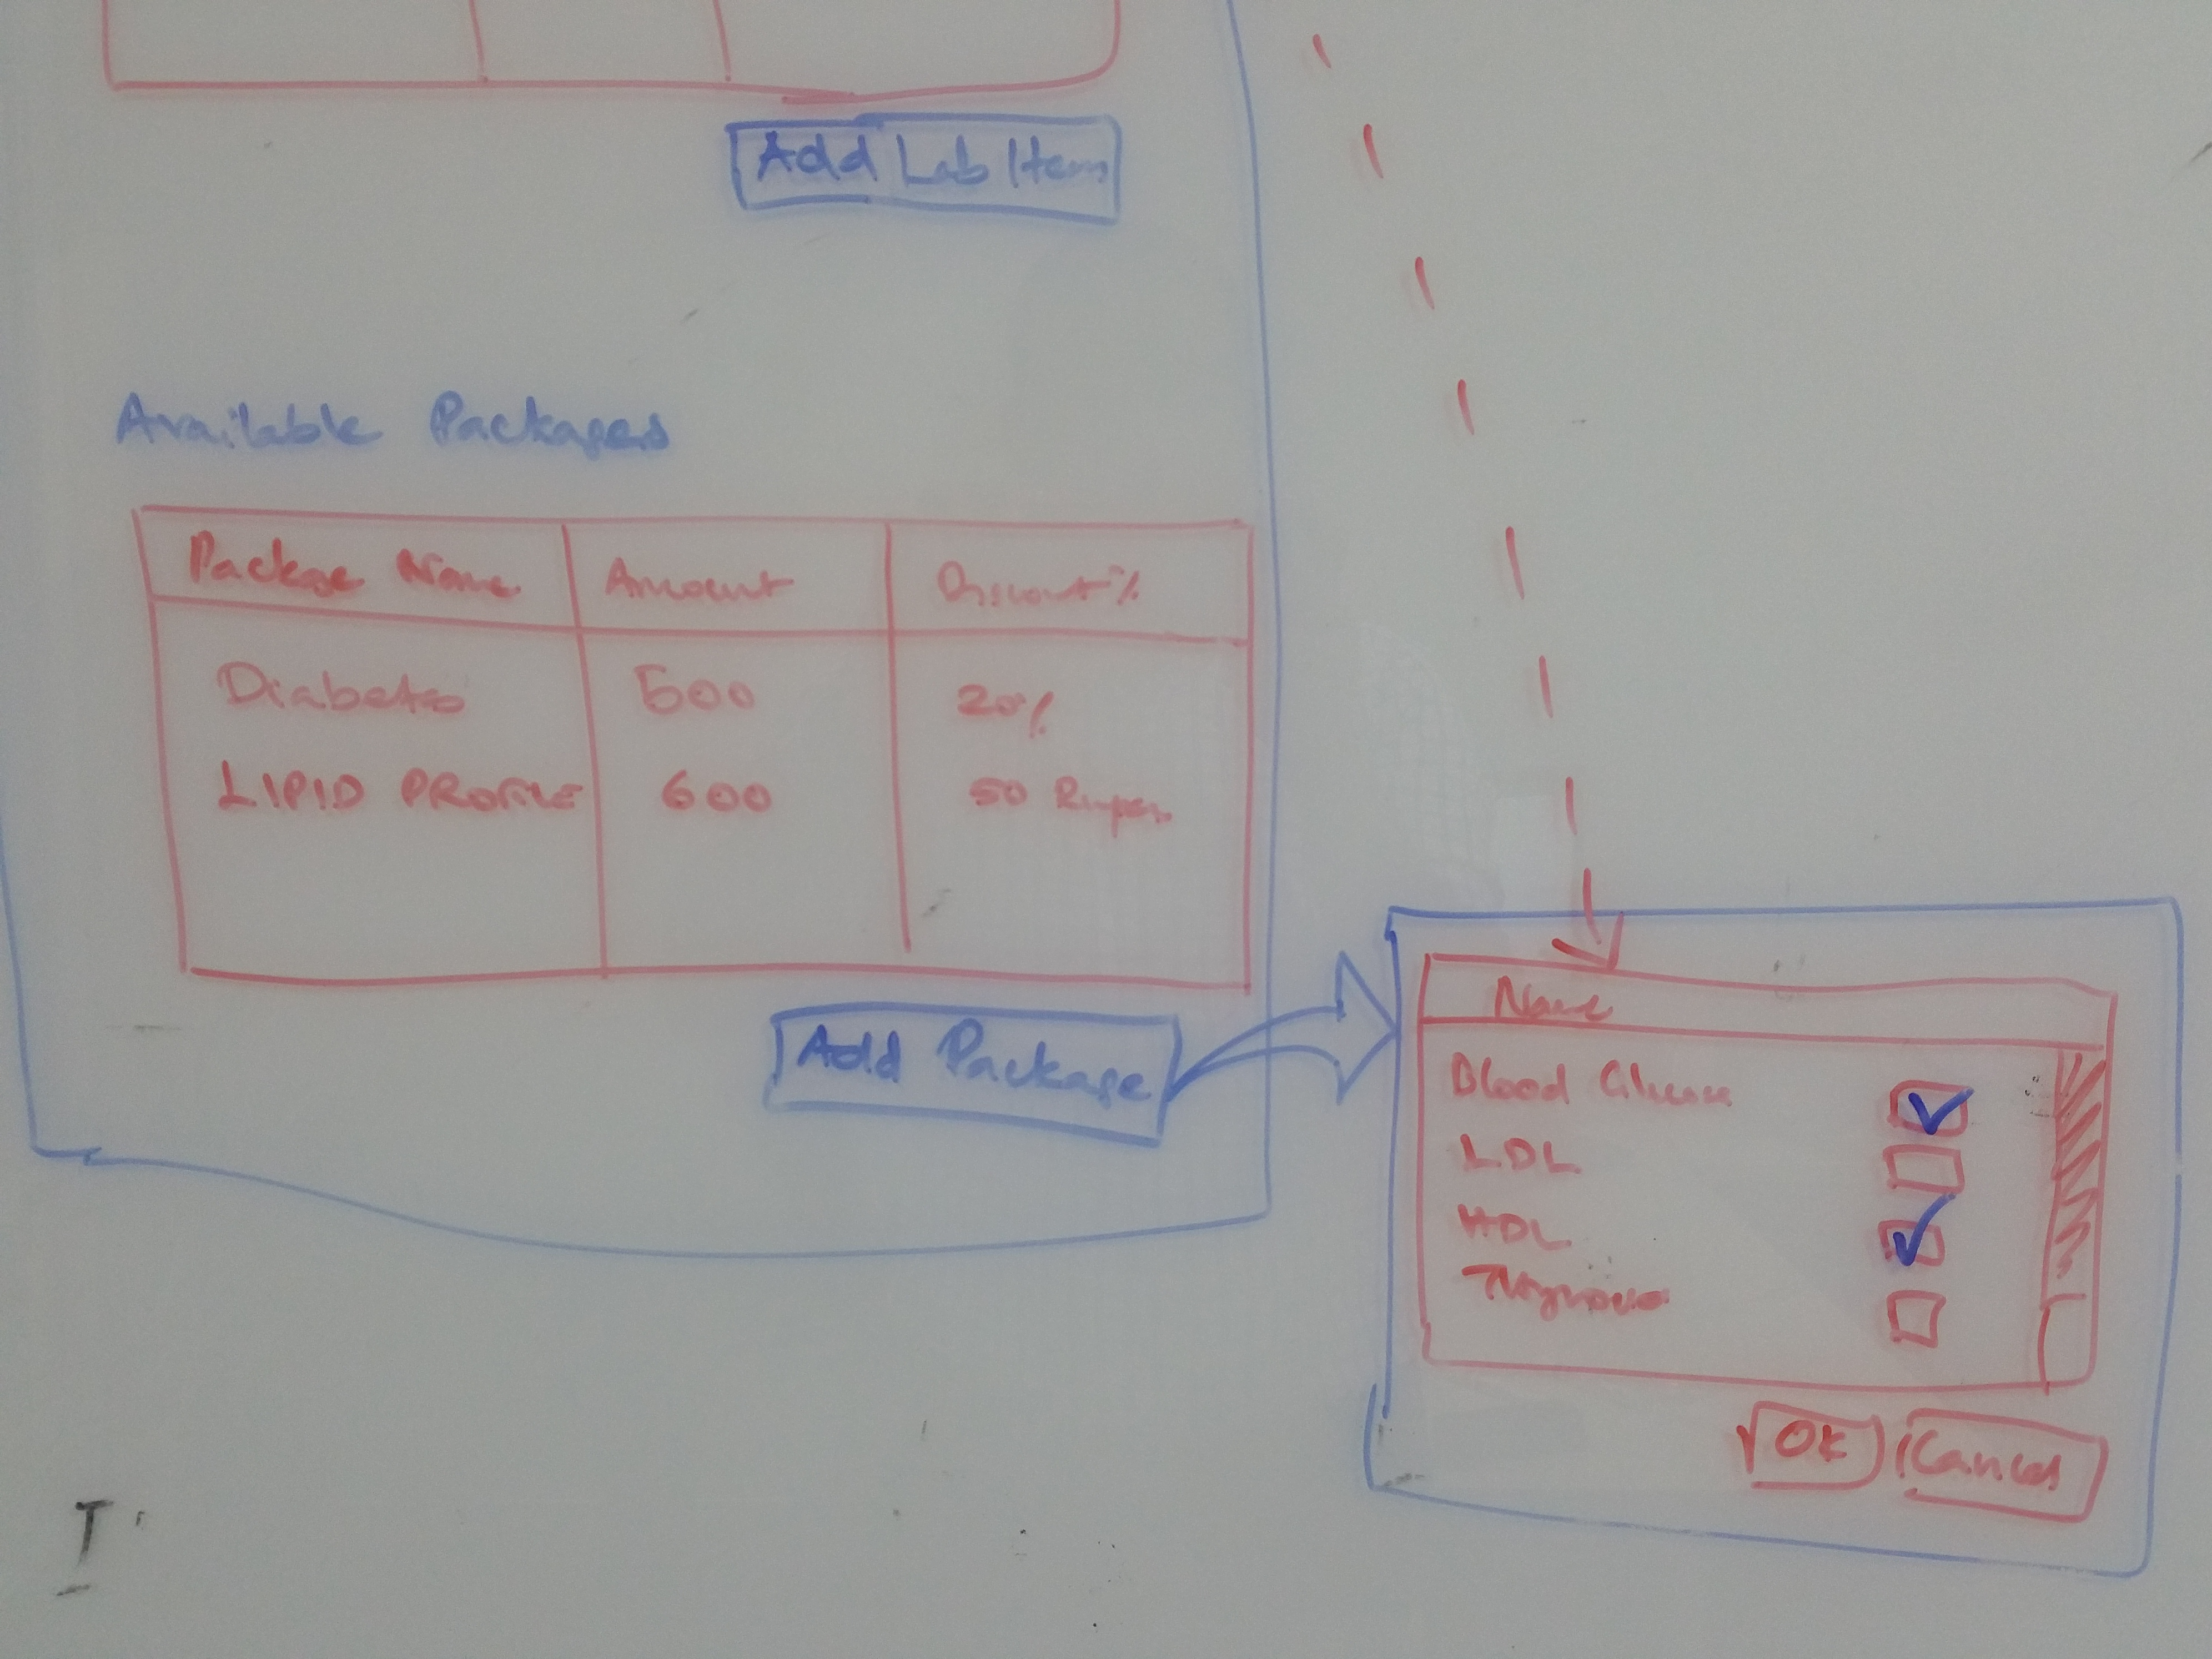 Add Lab Item
Available Packages
Package Name Amount Discount %
Diabetes 500 20%
LIPID PROFILE 600 50 Rupees
Add Package
Name
Blood Glucose
LDL
HDL
OK Cancel
I